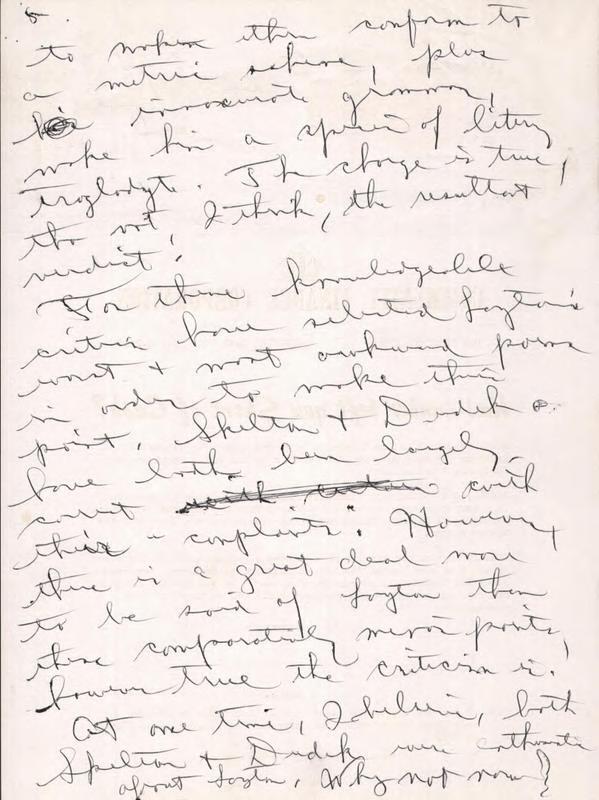 to make them conform to
a metric scheme, plus
inaccurate grammar,
make him a species of literary
troglodyte. The charge is true,
tho not, I think, the resultant
verdict.
For these knowledgeable
critics have selected Layton's
worst + most awkward poems
in order to make their
point. Skelton + Dudek
have both been largely
correct with certain with
their "complaints". However,
there is a great deal more
to be said of Layton than
these comparatively minor points,
however true the criticism is.
At one time, I believe, both
Skelton + Dudek were enthusiastic
about Layton. Why not now?